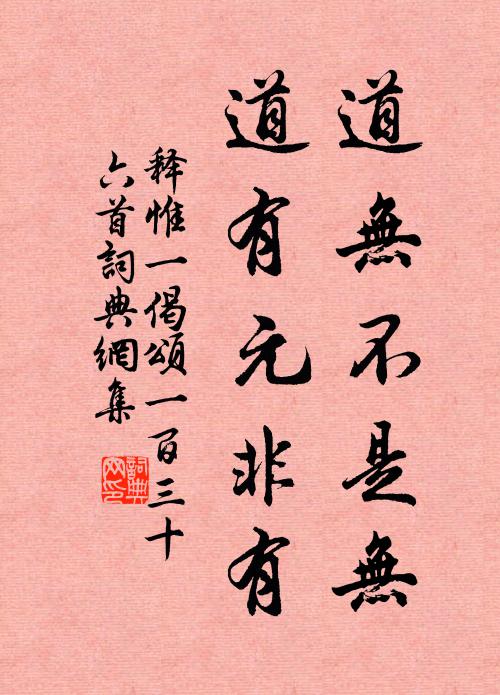 道無不是無
道有元非有
释惟一偈頌一百三十
六首詞典網集
詞典网印